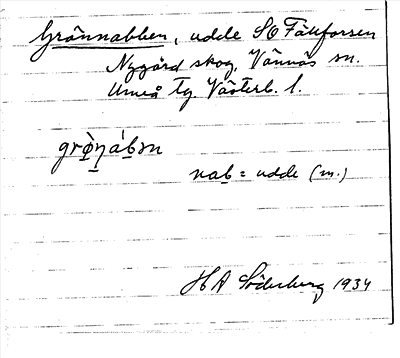 Grännabben, udde SO Fällforsen
Nygård skog, Vännäs sn.
Umeå tg. Västerb. l.
grø̀ŋábən
nab = udde (m.)
H A Söderberg 1934